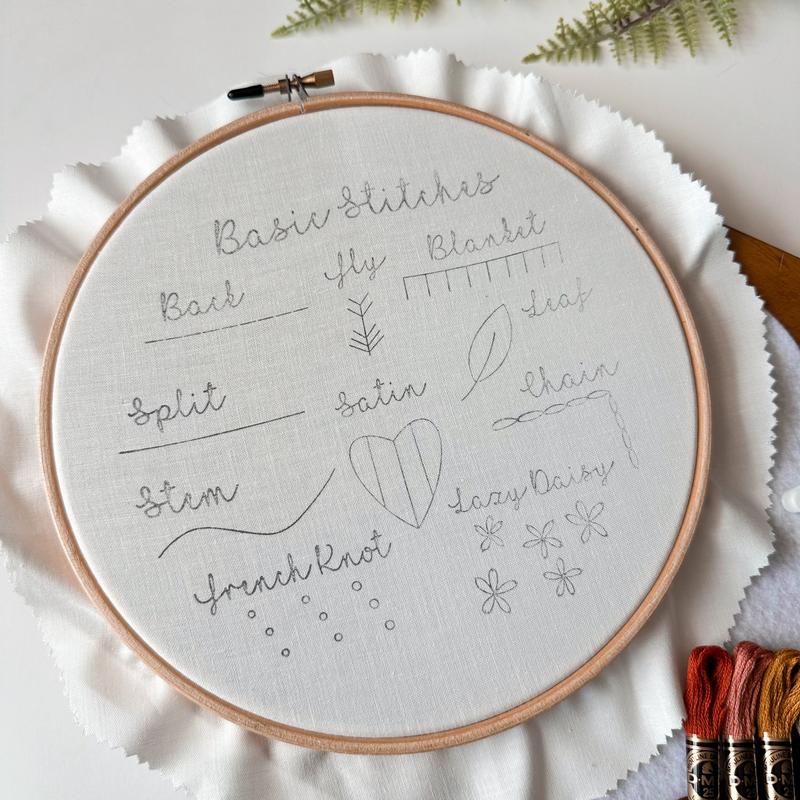 Basic Stitches
Back
fly
Blanket
Leaf
Split
Satin
Chain
Stem
Lazy Daisy
french Knot